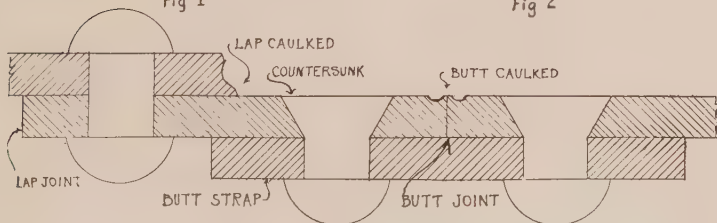 Fig 1
Fig 2
LAP CAULKED
COUNTERSUNK
BUTT CAULKED
LAP JOINT
BUTT STRAP
BUTT JOINT